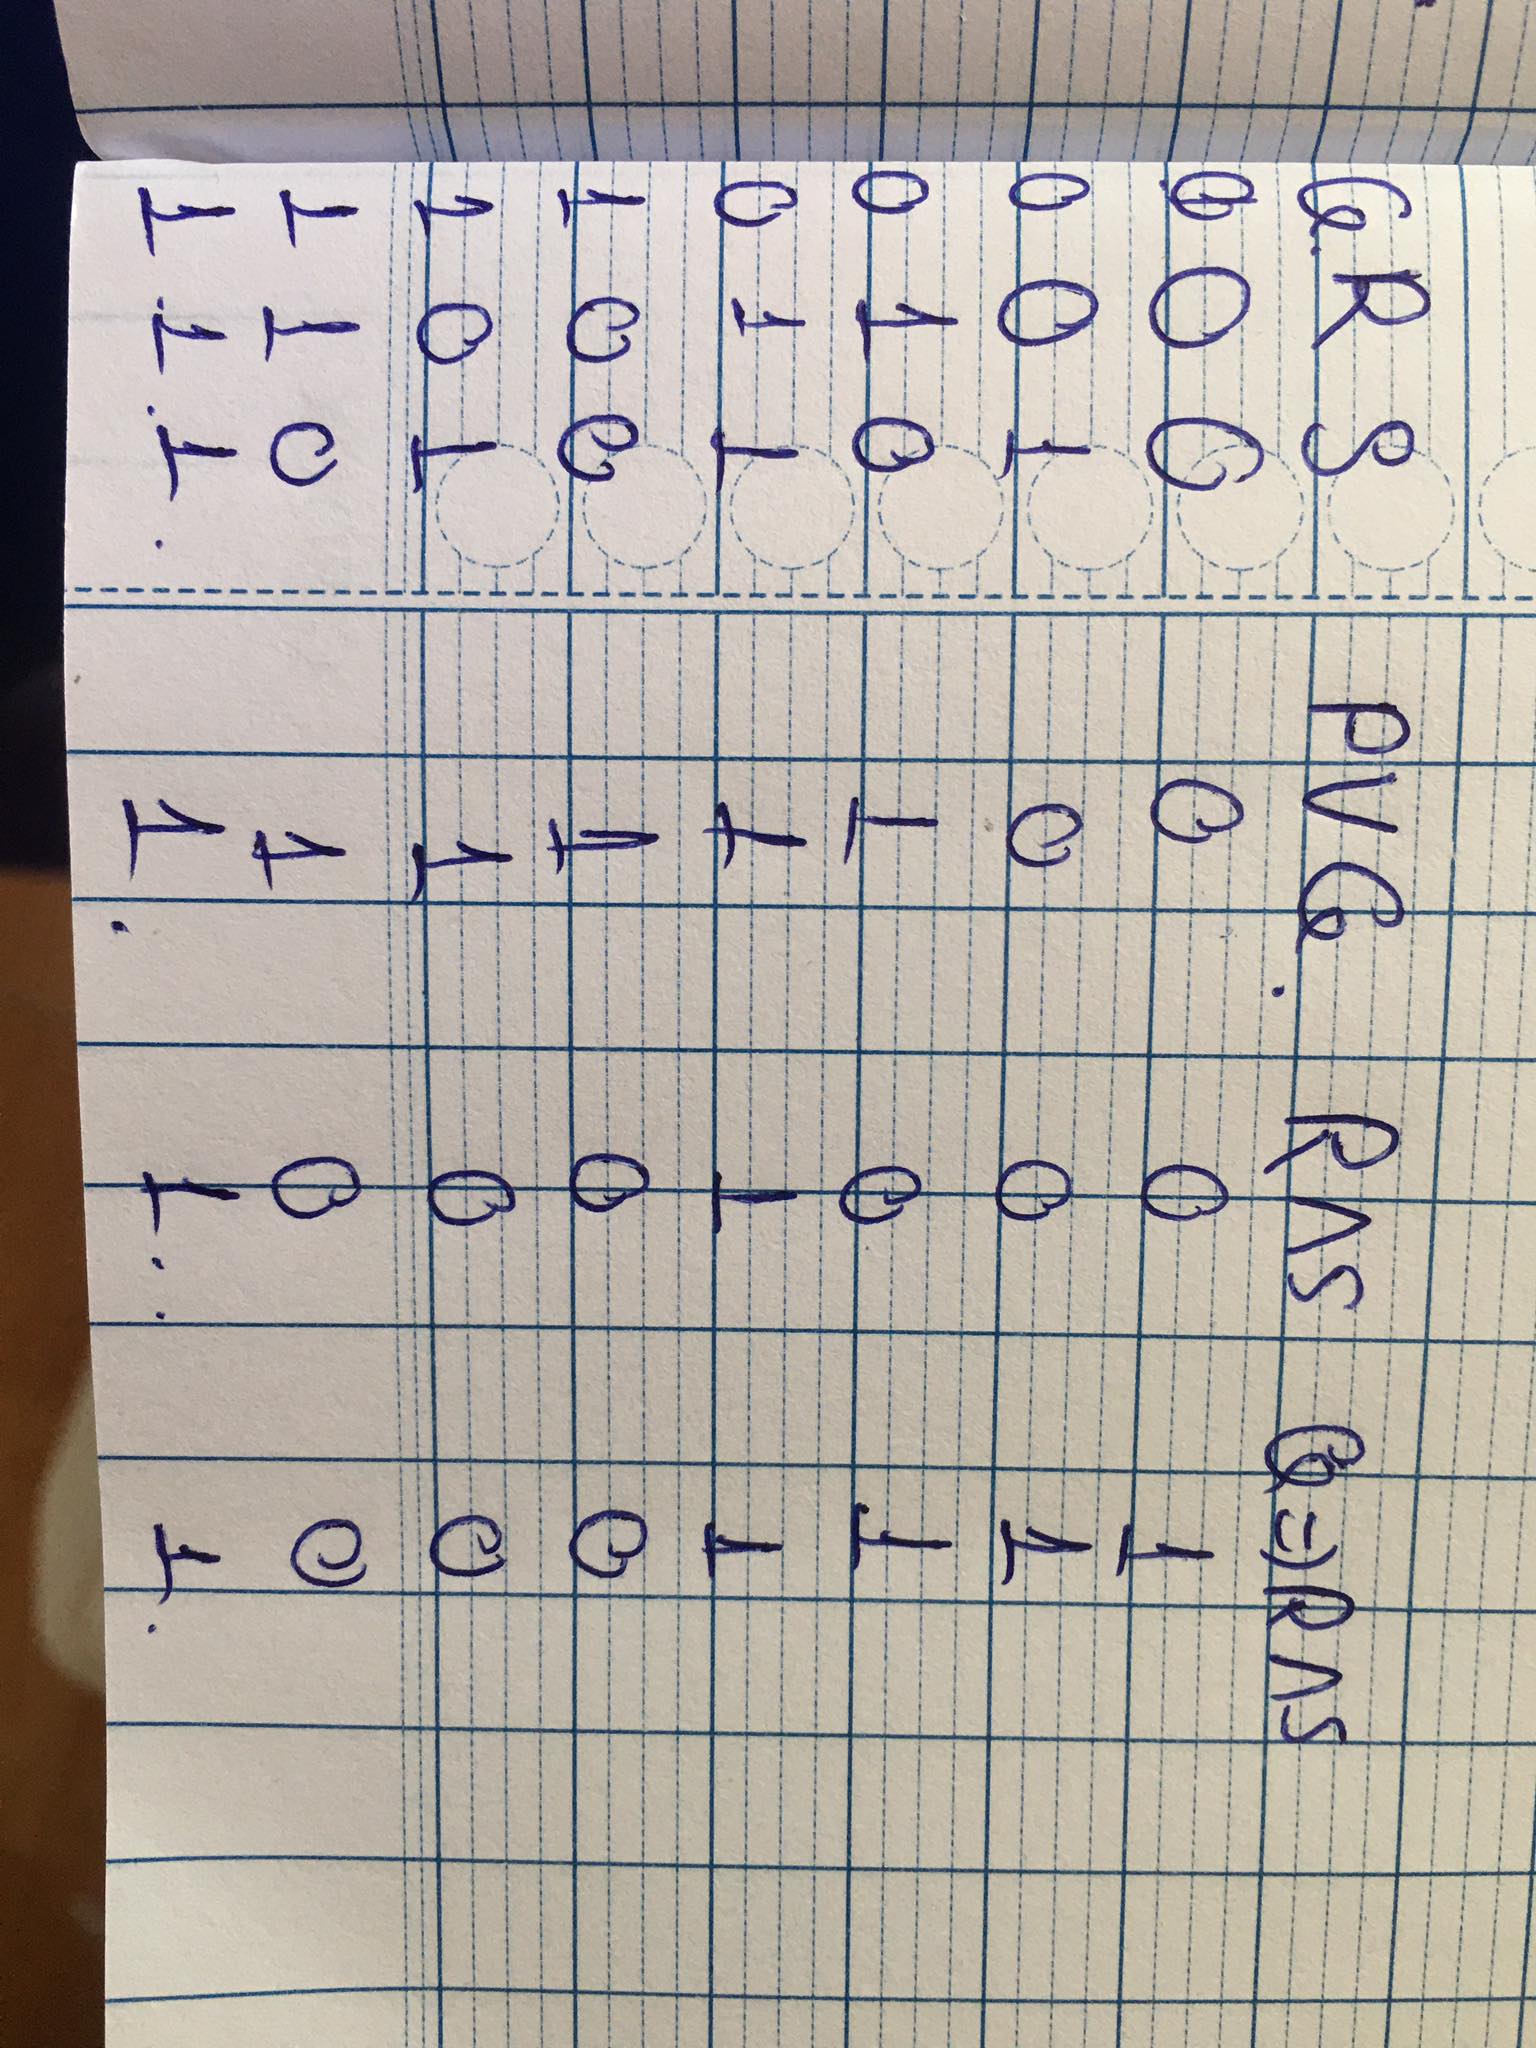 Q. R S PVQ. R∧S Q⇒R∧S
0 0 0 0 0 1
0 0 1 0 0 1
0 1 0 1 0 1
0 1 1 1 1 1
1 0 0 1 0 0
1 0 1 1 0 0
1 1 0 1 0 0
1 1 1 1 1 1